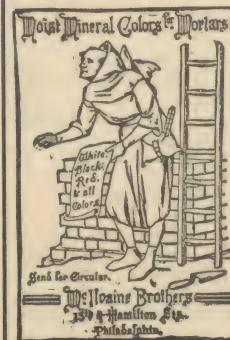 Moist Mineral Colors for Mortars
White.
Black.
Red.
& all
Colors
Send for Circular.
McIlvaine Brothers
15th & Hamilton Sts.
Philadelphia.